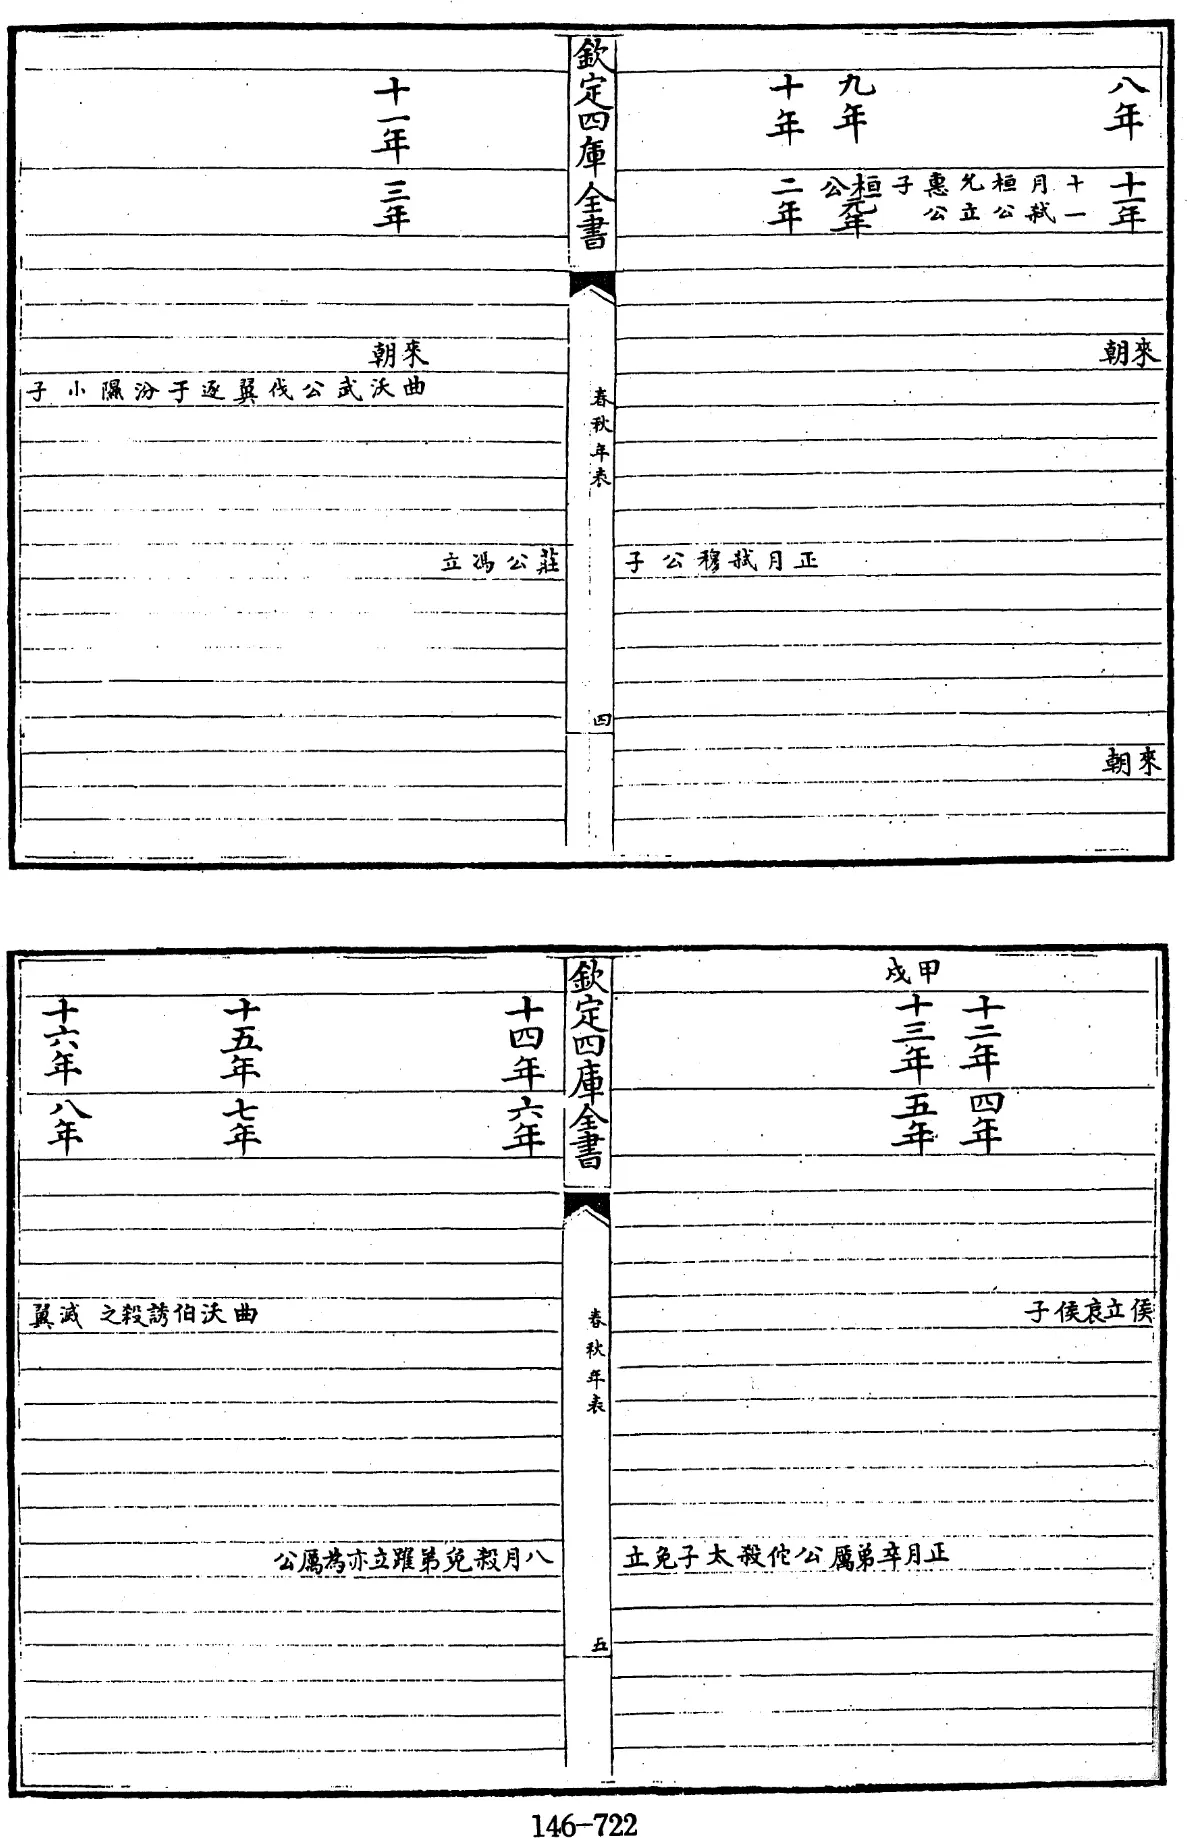 八年
十一年
十一月弑桓公允立惠公子
來朝
來朝
九年
桓公元年
十年
二年
正月弑穆公子
欽定四庫全書
春秋年表
四
莊公馮立
十一年
三年
來朝
曲沃武公伐翼逐于汾隰小子
侯立哀侯子
十二年
四年
甲戌
十三年
五年
正月卒弟厲公佗殺太子免立
欽定四庫全書
春秋年表
五
十四年
六年
八月殺兌弟躍立亦為厲公
十五年
七年
曲沃伯誘殺之滅翼
十六年
八年
146-722